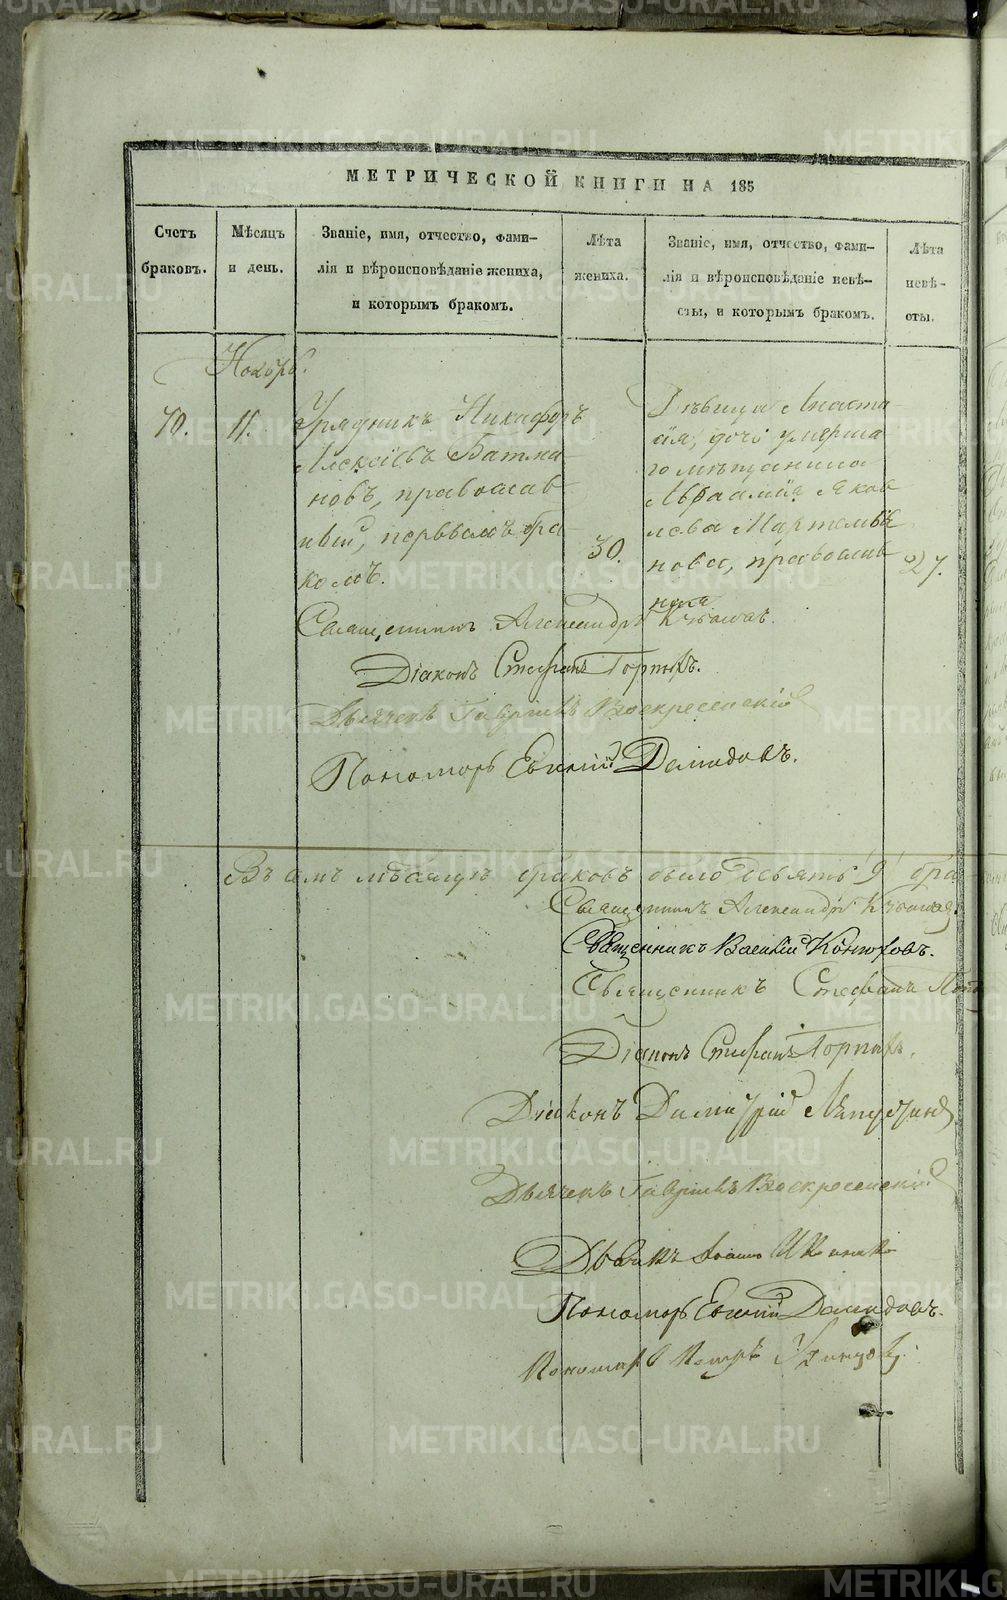 МЕТРИЧЕСКОЙ КНИГИ НА 185
Счетъ браковъ.
Мѣсяцъ и день.
Званіе, имя, отчество, фами-
лія и вѣроисповѣданіе жениха,
и которымъ бракомъ.
Лѣта жениха.
Званіе, имя, отчество, фами-
лія и вѣроисповѣданіе невѣ-
сты, и которымъ бракомъ.
Лѣта невѣ-
сты.
Ноябрь.
10.
11.
Урядникъ Никифоръ
Алексіевъ Батма
новъ, православ
ный, первымъ бра
комъ.
30.
Дѣвица Анаста
сія, дочь умерша
го мѣщанина
Авраамія Яков
лева Мартемья
нова, православ
ная
27.
Священникъ Александръ
Діаконъ Стефанъ
Дьячекъ Гавріилъ Воскресенскій
Пономарь Евгеній Демидовъ.
Въ семъ мѣсяцѣ браковъ было девять 9 бра
Священникъ Александръ
Священникъ Василій
Священникъ Стефанъ
Діаконъ Стефанъ
Діаконъ Димитрій
Дьячекъ Гавріилъ Воскресенскій
Дьячекъ
Пономарь Евгеній Демидовъ.
Пономарь Петръ
METRIKI.GASO-URAL.RU